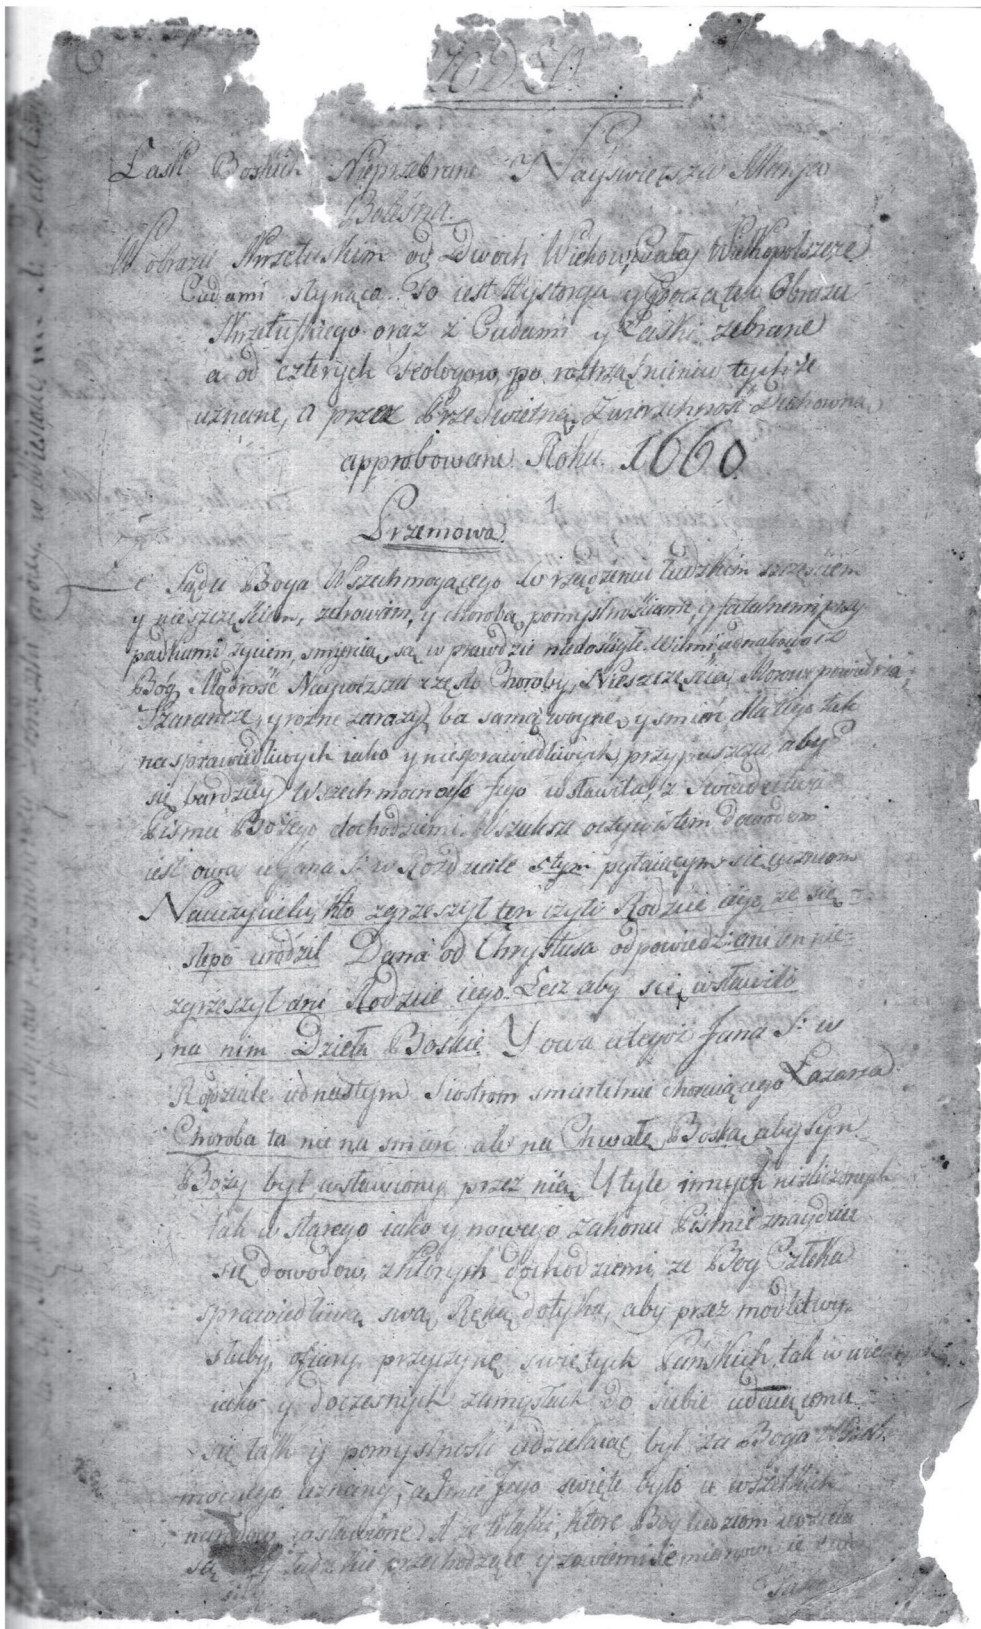 Łask Boskich Nieprzebrane Nayświętsza Marya
Bolesna.
W obrazie Skrzetuskim od Dwóch Wiekow Całey Wielkopolszcze
Cudami słynąca. To iest Hystorya y Początek Obrazu
Skrzetuskiego oraz z Cudami y Łaski zebrane
a od czterych Teologow po roztrząśnieniu tychże
uznane, a przez Prześwietną Zwierzchność Duchowną
approbowane Roku 1660.
1
Przemowa.
Że Sądu Boga Wszechmogącego w rządzeniu ludzkim szczęściem
y nieszczęściem, zdrowiem, y chorobą, pomyślnościami, y fatalnemi przy-
padkami życiem, śmiercią są w prawdzie niedościgłe Wiemy iednakowoż
Bóg Mądrość Naywyższa częste Choroby, Nieszczęścia, Morowe powietrza,
Szarańcze, y rozne zarazy, ba samą woynę, y śmierć dla tego tak
na sprawiedliwych iako y niesprawiedliwych przypuszcza, aby
się bardziey Wszechmocność Jego wsławiła, z Swiadectwa
Pisma Bożego dochodziemy. Wszakże oczywistem dowodem
iest owa u Jana S: w Rozdziale 9tym pytaiącym się uczniom
Nauczycielu, kto zgrzeszył ten czyli Rodzice iego, że się
ślepo urodził Dana od Chrystusa odpowiedź ani ten nie-
zgrzeszył ani Rodzice iego. Lecz aby się wsławiło
na nim Dzieła Boskie. Y owa u tegoż Jana S: w
Rozdziale iednastym Siostrom śmiertelnie choruiącego Łazarza.
Choroba ta nie na śmierć ale na Chwałę Boską, aby Syn
Boży był wsławiony przez nią. Y tyle innych niezliczonych
tak w starego iako y nowego zakonu Piśmie znaydzie
się dowodow, z których dochodziemy, że Bog Człeka
sprawiedliwą swą Ręką dotyka, aby przez modlitwy,
śluby, ofiary, przyczynę świętych Pańskich, tak w
iako y doczesnych zamysłach do siebie udaiącemu
się łask y pomyślności udzielaiąc był za Boga Wszech-
mocnego uznany, a Imie Jego święte było u wszelkich
narodow wsławione. A że te łaski, które Bog ludziom
są ludzkie przechodzące y